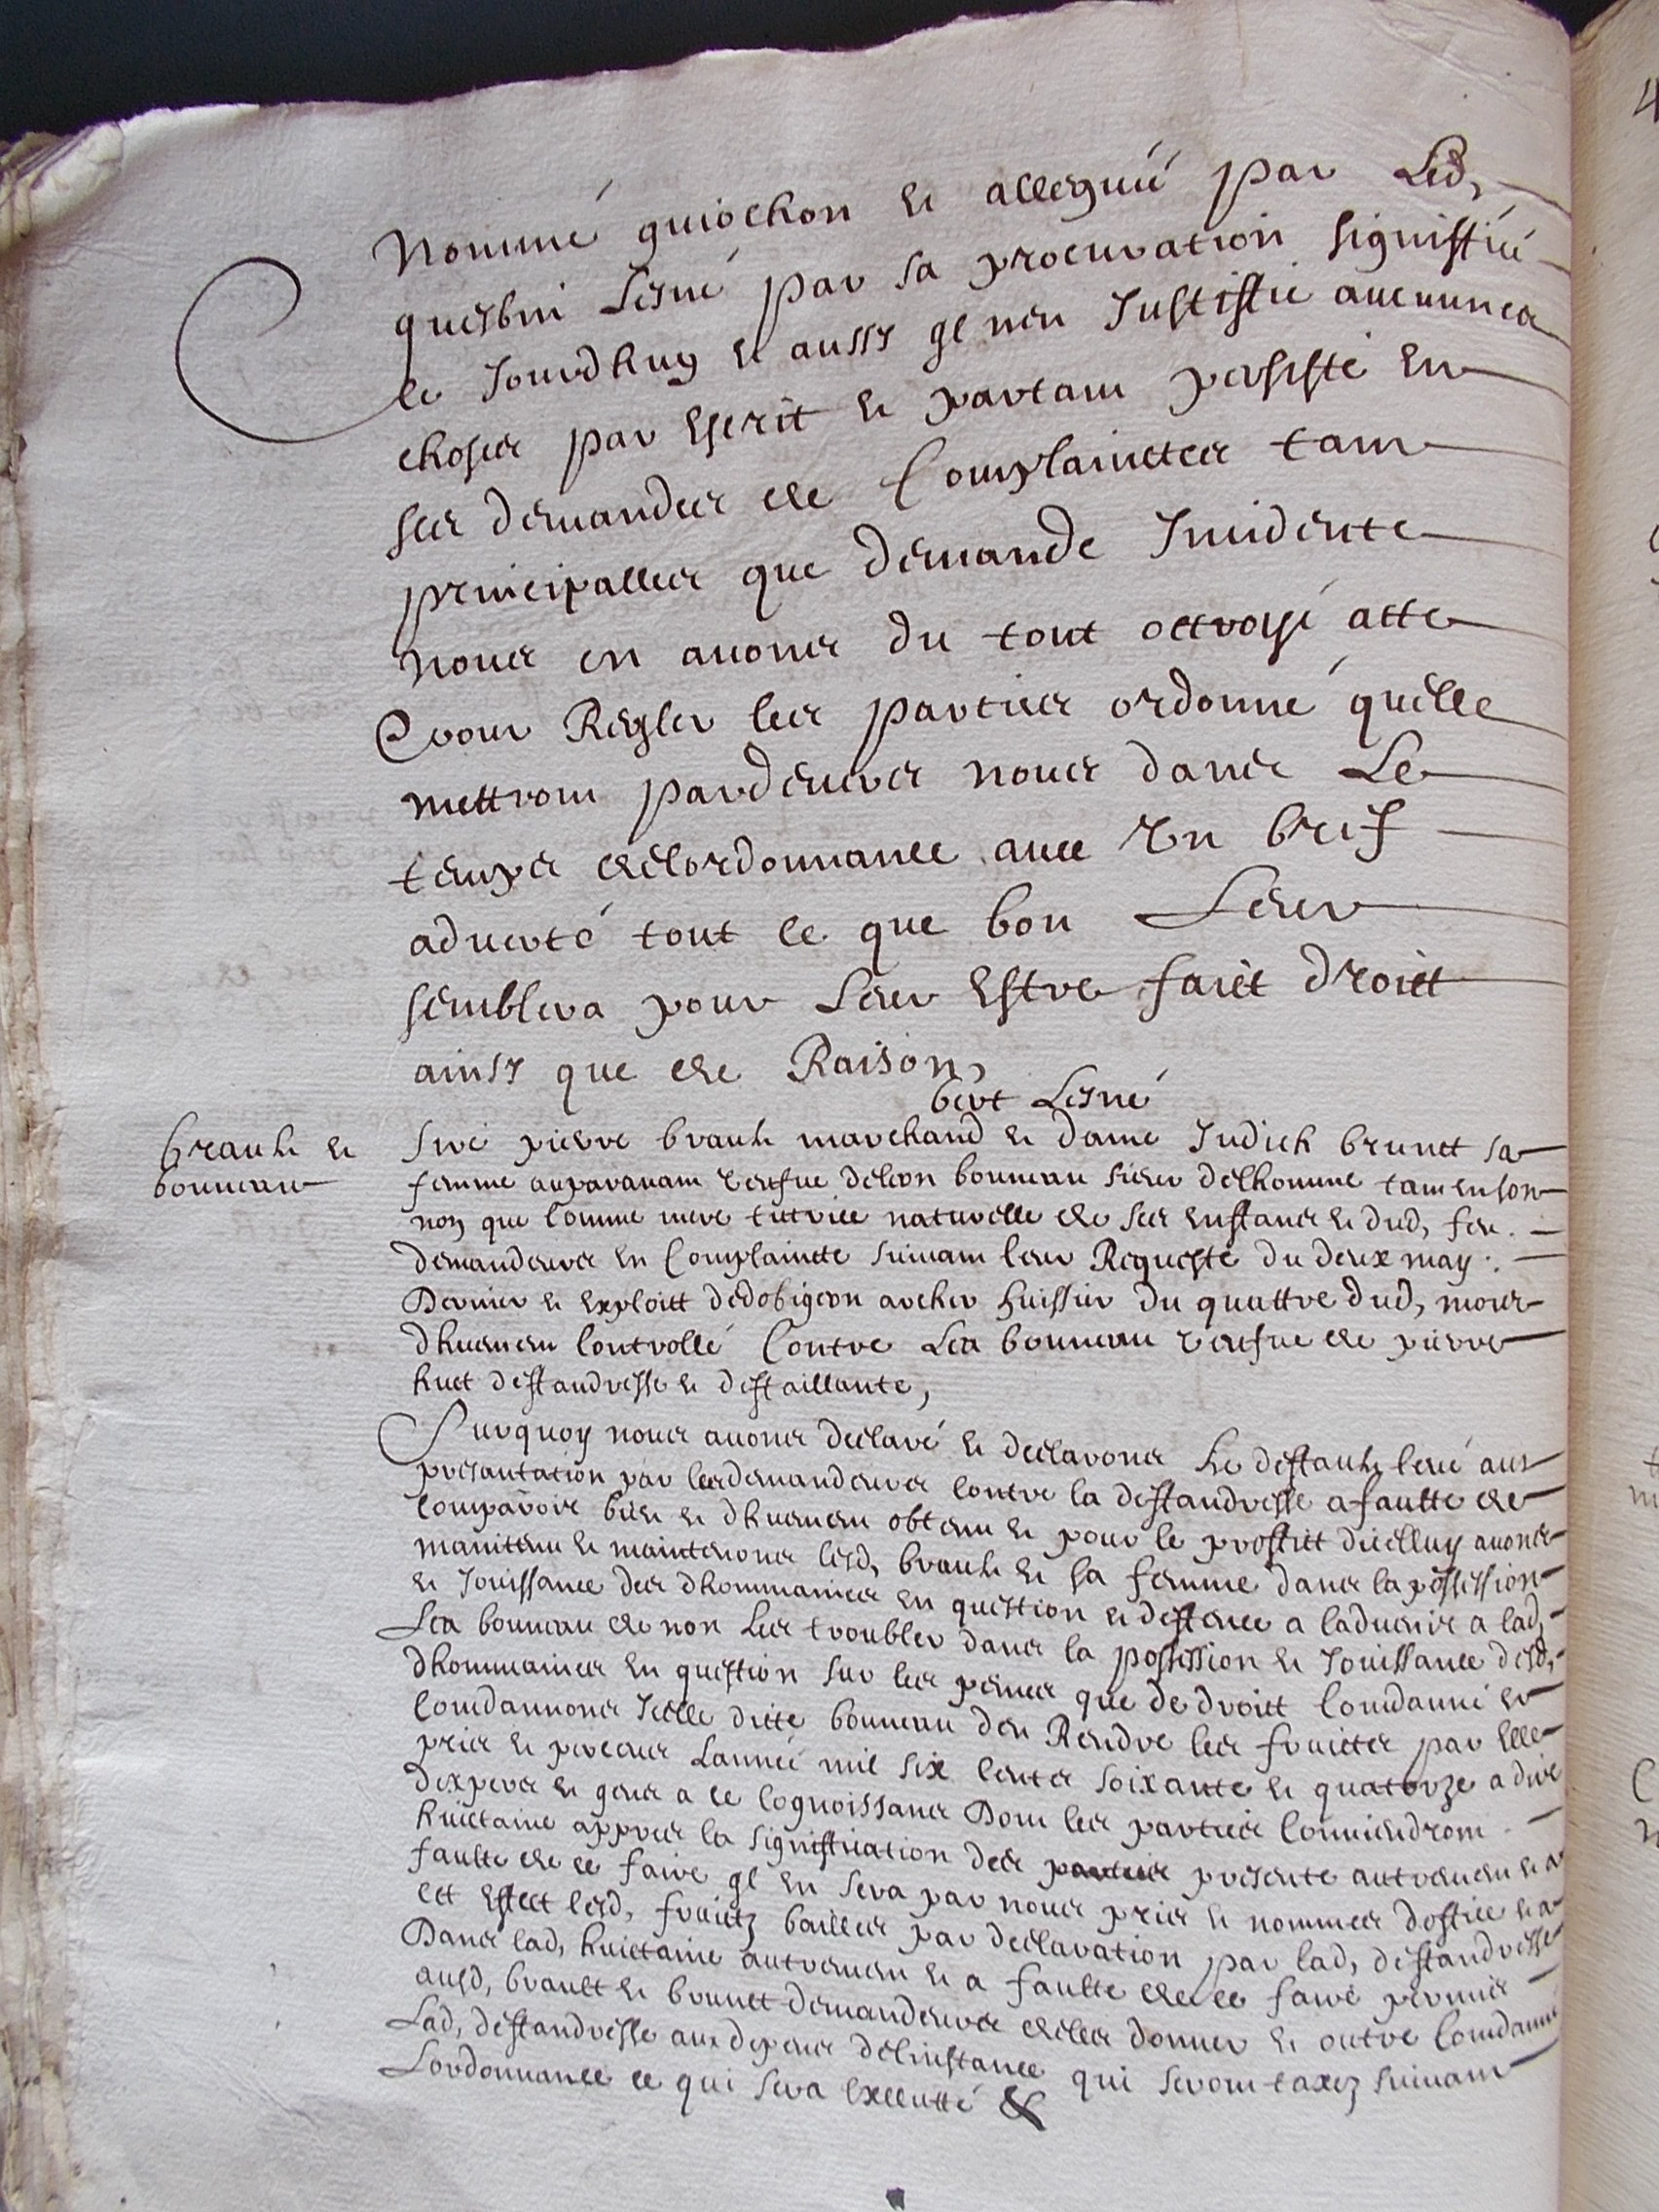 nommé guiochon et allegué par Led,
quesbin Lesné par sa procuration signiffiée
ce Jourdhuy et aussy Il nen Justiffie aucunnes
choses par Escrit et partant persisté En
ses demandes de Complainctes tant
principalles que demande Incidente
nous en avons du tout octroyé acte
Et pour Regler les parties ordonné quelle
mettront pardevers nous dans Le
temps de lordonnance avec Un brif
adverté tout ce que bon Leur
semblera pour Leur Estre faict droict
ainsy que de Raison,
bert Lesné
brault et
bonneau
Sire pierre brault marchand et dame Judich brunet sa
femme auparavant veufue deleon bonneau sieur delhomme tant en son
nom que Comme mere tutrice naturelle de ses enffans et dud, feu
demandeurs en Complaincte suivant leur Requeste du deux may
Dernier et Exploict dedobigeon archer huissier du quattre dud, mois
dhuement Controllé Contre Lea bonneau veufue de pierre
huet deffandresse et deffaillante,
Surquoy nous avons declaré et declarons Le deffault levé aux
presantation par lesdemandeurs contre la deffandresse afaulte de
Comparoir bien et dhuement obtenu et pour le proffict dicelluy avons
maintenu et maintenons lesd, brault et sa femme dans la possession
et Jouissance des dhommaines en question et deffence a ladvenir a lad,
Lea bonneau de non Les troubler dans la possession et Jouissance desd,
dhommaines en question sur les peines que de droict Condanné et
Condannons Icelle ditte bonneau den Rendre les fruictes par Elle
pris et perceus Lannée mil six cents soixante et quatorze a dire
dexpers et gens a ce Cognoissans Dont les parties Conviendront
huictaine appres la signiffication des parties presente autrement et a
faulte de ce faire Il en sera par nous pris et nommés doffice et a
cet Effect lesd, fruictz bailles par declaration par lad, deffandresse
Dans lad, huictaine autrement et a faulte de ce faire permis
ausd, brault et brunet demandeurs de les donner et outre Condanne
Lad, deffandresse aux depens delinstance qui seront taxez suivant
Lordonnance ce qui sera Executté &